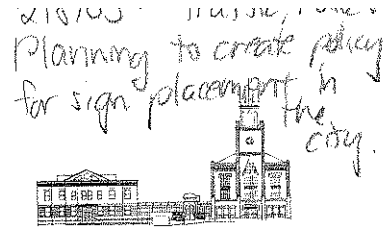 Planning to create policy
for sign placement in
the
city.